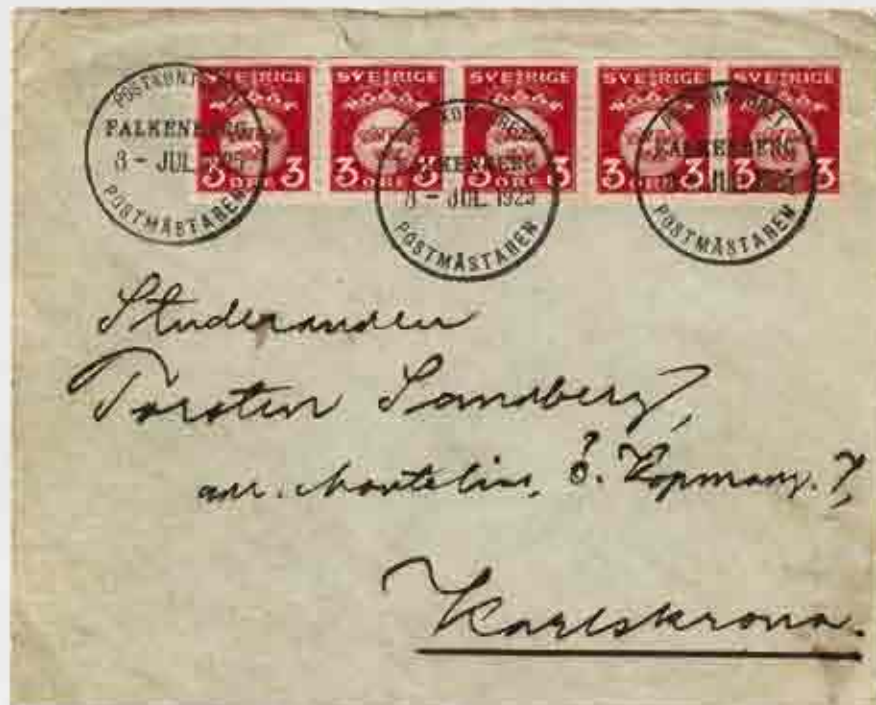 SVERIGE SVERIGE SVERIGE SVERIGE SVERIGE
3 ÖRE 3 3 ÖRE 3 3 ÖRE 3 3 ÖRE 3 3 ÖRE 3
POSTKONTORET
FALKENBERG
3 - JUL. 1925
POSTMÄSTAREN
POSTKONTORET
FALKENBERG
3 - JUL. 1925
POSTMÄSTAREN
POSTKONTORET
FALKENBERG
3 - JUL. 1925
POSTMÄSTAREN
Studeranden
Torsten Sandberg,
adr. Montelin, Ö. Köpmang. 7,
Karlskrona.